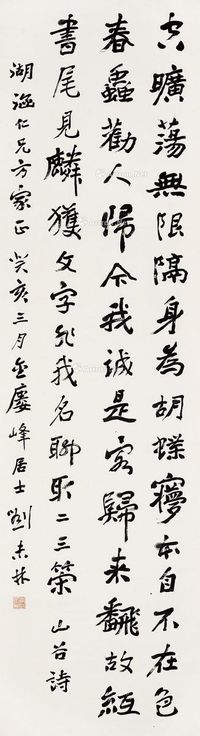 空曠蕩無限隔身為胡蝶夢本自不在色
春蟲勸人歸今我誠是客歸来翻故紙
書尾見麟獲文字非我名聊取二三策 山谷詩
湖涵仁兄方家正 癸亥三月 峰居士劉未林